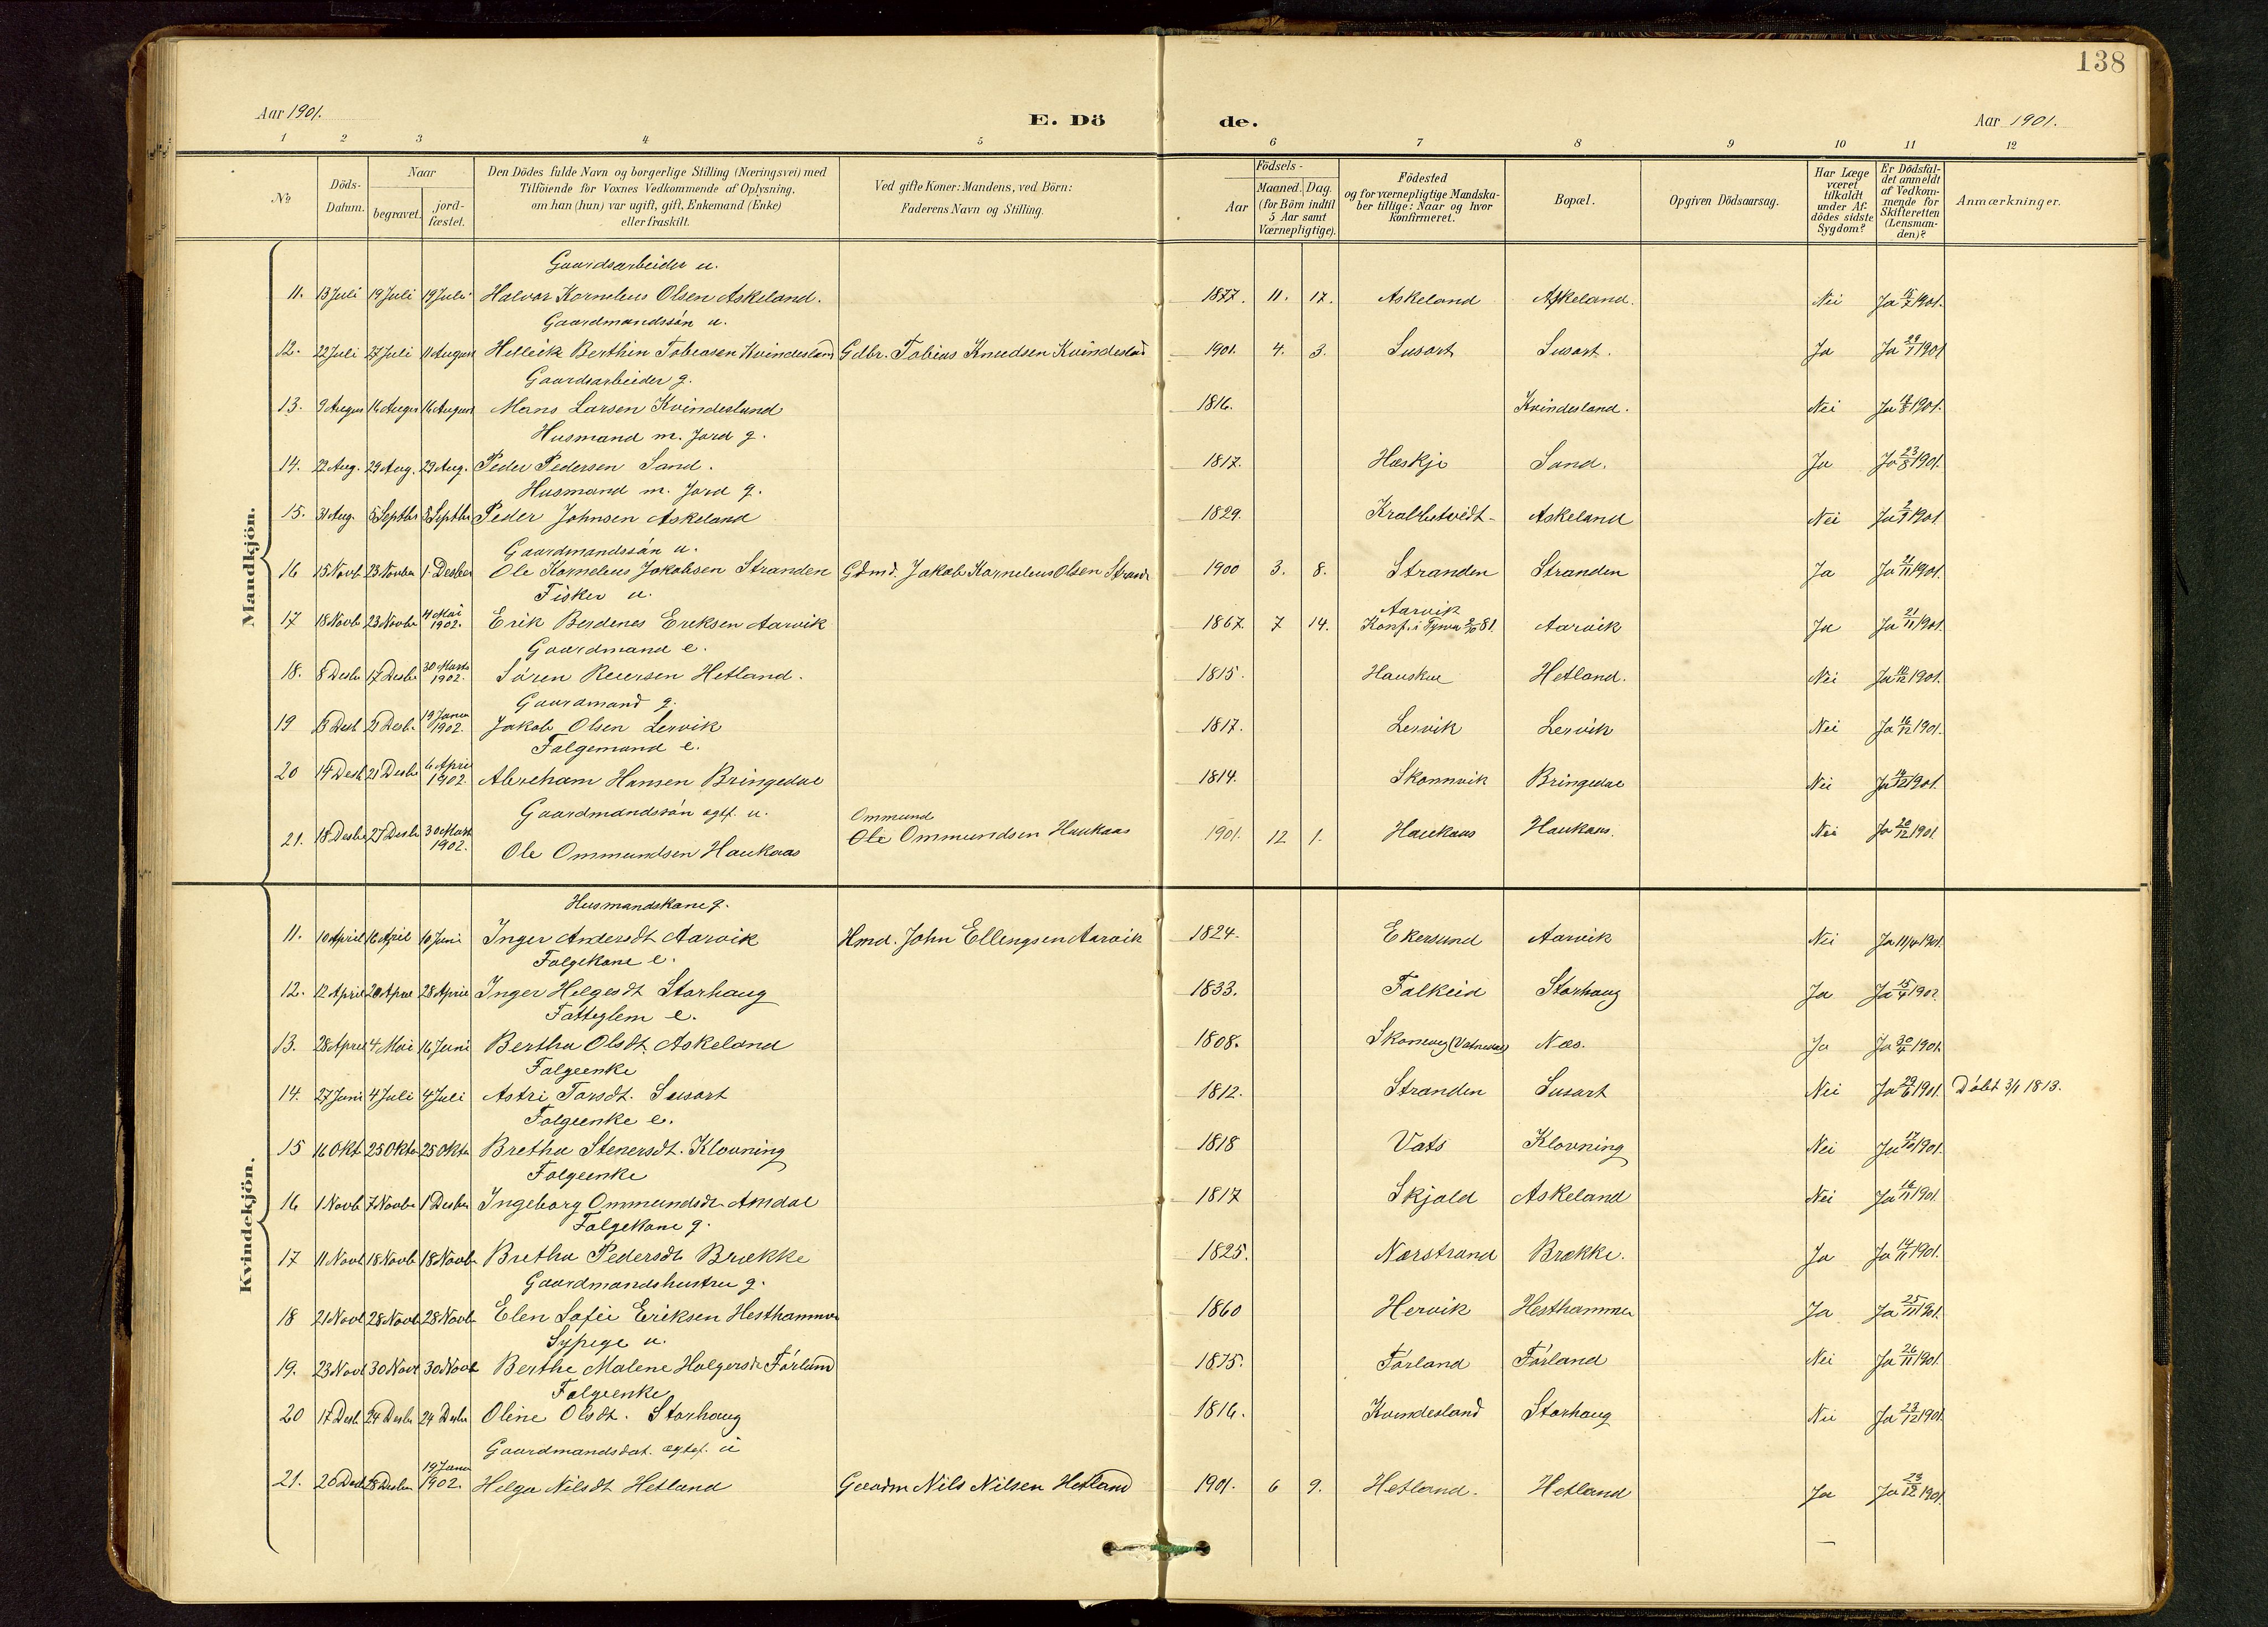 138
Aar 1901.
E. Dö de.
Aar 1901.
1 2 3 4 5 6 7 8 9 10 11 12
No
Döds-Datum.
Naar
begravet.
jord-fæstet.
Den Dödes fulde Navn og borgerlige Stilling (Næringsvei) med
Tilföiende for Voxnes Vedkommende af Oplysning,
om han (hun) var ugift, gift, Enkemand (Enke)
eller fraskilt.
Ved gifte Koner: Mandens, ved Börn:
Faderens Navn og Stilling.
Födsels-
Aar
Maaned. Dag.
(for Börn indtil
5 Aar samt
Værnepligtige).
Födested
og for værnepligtige Mandska-
ber tillige: Naar og hvor
konfirmeret.
Bopæl.
Opgiven Dödsaarsag.
Har Læge
været
tilkaldt
under Af-
dödes sidste
Sygdom?
Er Dödsfal-
det anmeldt
af Vedkom-
mende for
Skifteretten
(Lensman-
den)?
Anmærkninger.
Mandkjön.
Gaardsarbeider u.
11. 13 Juli 19 Juli 19 Juli Halvor Kornelius Olsen Askeland. 1877. 11. 17. Askeland Askeland. Nei Ja 1901.
Gaardmandssön u.
12. 22 Juli 27 Juli 11 August Helleik Berthin Tobiasen Kvindesland Gdbr. Tobias Knudsen Kvindesland 1901. 4. 3. Susort Susort. Ja Ja 1901
Gaardsarbeider g.
13. 9 August 16 August 16 August Mons Larsen Kvindesland 1816. Kvindesland. Nei Ja 1901.
Husmand m. Jord g.
14. 22 Aug. 29 Aug. 29 Aug. Peder Pedersen Sand. 1817. Høskje Sand. Ja Ja 23/8 1901.
Husmand m. Jord g.
15. 31 Aug. 5 Septbr 5 Septbr Peder Johnsen Askeland 1829. Askeland Nei Ja 1901
Gaardmandssön u.
16 15 Novb 23 Novber 1. Desber Ole Kornelius Jakobsen Stranden Gdmd. Jakob Kornelius Olsen 1900 3. 8. Stranden Stranden Ja Ja 21/11 1901.
Fisker u.
17 18 Novb 23 Novbr 4 Mai 1902. Erik Berdenes Eriksen Aarvik 1867. 7 14. Aarvik Konf. i Tysvær 81. Aarvik Ja Ja 21/11 1901.
Gaardmand e.
18. 8 Desbr 17 Desbr 30 Marts 1902. Sören Reiersen Hetland. 1815. Hauskue Hetland. Nei Ja 1901.
Gaardmand g.
19 13 Desb 21 Desbr 19 Januar 1902. Jakob Olsen Lervik 1817. Lervik Lervik Nei Ja 16/12 1901.
Folgemand e.
20 14 Desb 21 Desbr 6 April 1902. Abraham Hansen Bringedal 1814. Skonnvik Bringedal Nei Ja 1901.
Gaardmandssön egtf. u.
21. 18 Desbr 27 Desbr 30 Marts 1902. Ole Ommundsen Haukaas Ommund Ole Ommundsen Haukaas 1901. 12 1. Haukaas Haukaas. Nei Ja 20/12 1901
Kvindekjön.
Husmandskone g.
11. 10 April 16 April 10 Juni Inger Andersdt Aarvik Hmd. John Ellingsen Aarvik 1824. Ekersund Aarvik Nei Ja 11/4 1901.
Folgekone e.
12. 12 April 20 April 28 April Inger Helgesdt Storhaug 1833. Falkeid Storhaug Ja Ja 15/4 1902.
Fattiglem e.
13. 28 April 4 Mai 16 Juni Bertha Olsdt. Askeland 1808. Næs. Ja Ja 30/4 1901.
Folgeenke
14. 27 Juni 4 Juli 4 Juli Astri Torsdt. Susort 1812. Stranden Susort Nei Ja 29/6 1901. Döbt 3/1 1813.
Folgeenke e.
15 16 Okt 25 Oktr 25 Oktr Bretha Stenersdt. Klovning 1818 Vats Klovning Nei Ja 17/10 1901.
Folgeenke
16 1 Novb 7 Novbr 1 Desber Ingeborg Ommundsdt. Amdal 1817 Skjold Askeland Nei Ja 1901.
Folgekone g.
17 11 Novb 18 Novb 18 Novb Bretha Pedersdt Brække 1825. Nærstrand Brække. Ja Ja 14/11 1901.
Gaardmandshustru g.
18 21 Novb 28 Novb 28 Novb Elen Sofie Eriksen Hesthammer 1860 Hervik Hesthammer Ja Ja 25/11 1901.
Sypige u.
19. 23 Novb 30 Novb 30 Novb Berthe Malene Holgersdt Förland 1875. Förland Förland Nei Ja 26/11 1901.
Folgeenke
20 17 Desb 24 Desbr 24 Desbr Oline Olsdt. Storhaug 1816. Kvindesland Storhaug Nei Ja 23/12 1901
Gaardmandsdat. egtef. u
21. 20 Desb 28 Desber 19 Januar 1902. Helga Nilsdt Hetland Gaardm Nils Nilsen Hetland 1901. 6 9. Hetland. Hetland Ja Ja 23/12 1901.